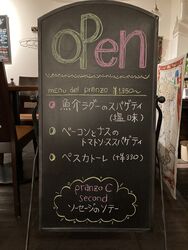 open
menu del pranzo ¥1,350~
魚介ラグーのスパゲティ
(塩味)
ベーコンとナスの
トマトソススパゲティ
ペスカトーレ (+¥330)
pranzo C
second
ソーセージのソテー